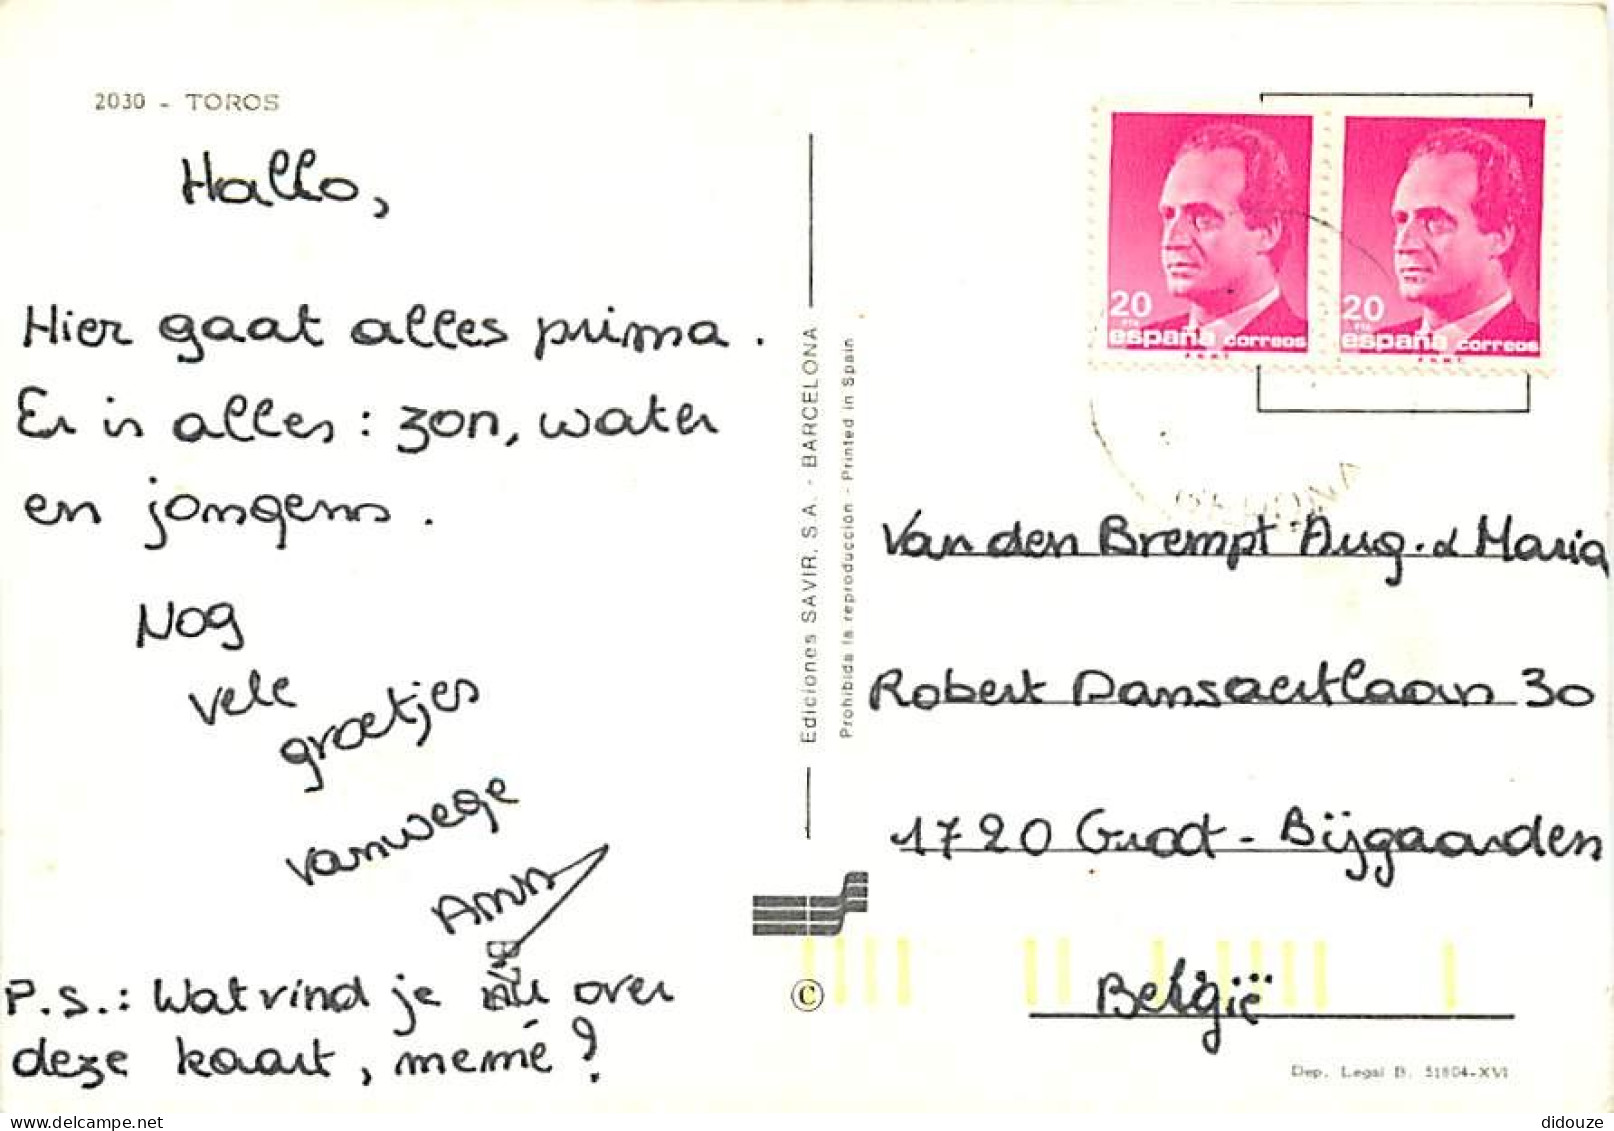 2030 - TOROS
Hallo,
Hier gaat alles prima.
Er is alles: zon, water
en jongens.
Nog
vele
groetjes
vanwege
Ann
P.S.: Wat vind je nu over
deze kaart, memé?
Ediciones SAVIR, S.A. - BARCELONA
Prohibida la reproducción - Printed in Spain
20
PTA
españa correos
F.N.M.T.
20
PTA
españa correos
F.N.M.T.
Van den Brempt Aug. & Maria
Robert Dansaertlaan 30
1720 Groot-Bijgaarden
België
©
Dep. Legal B. 51804-XVI
didouze